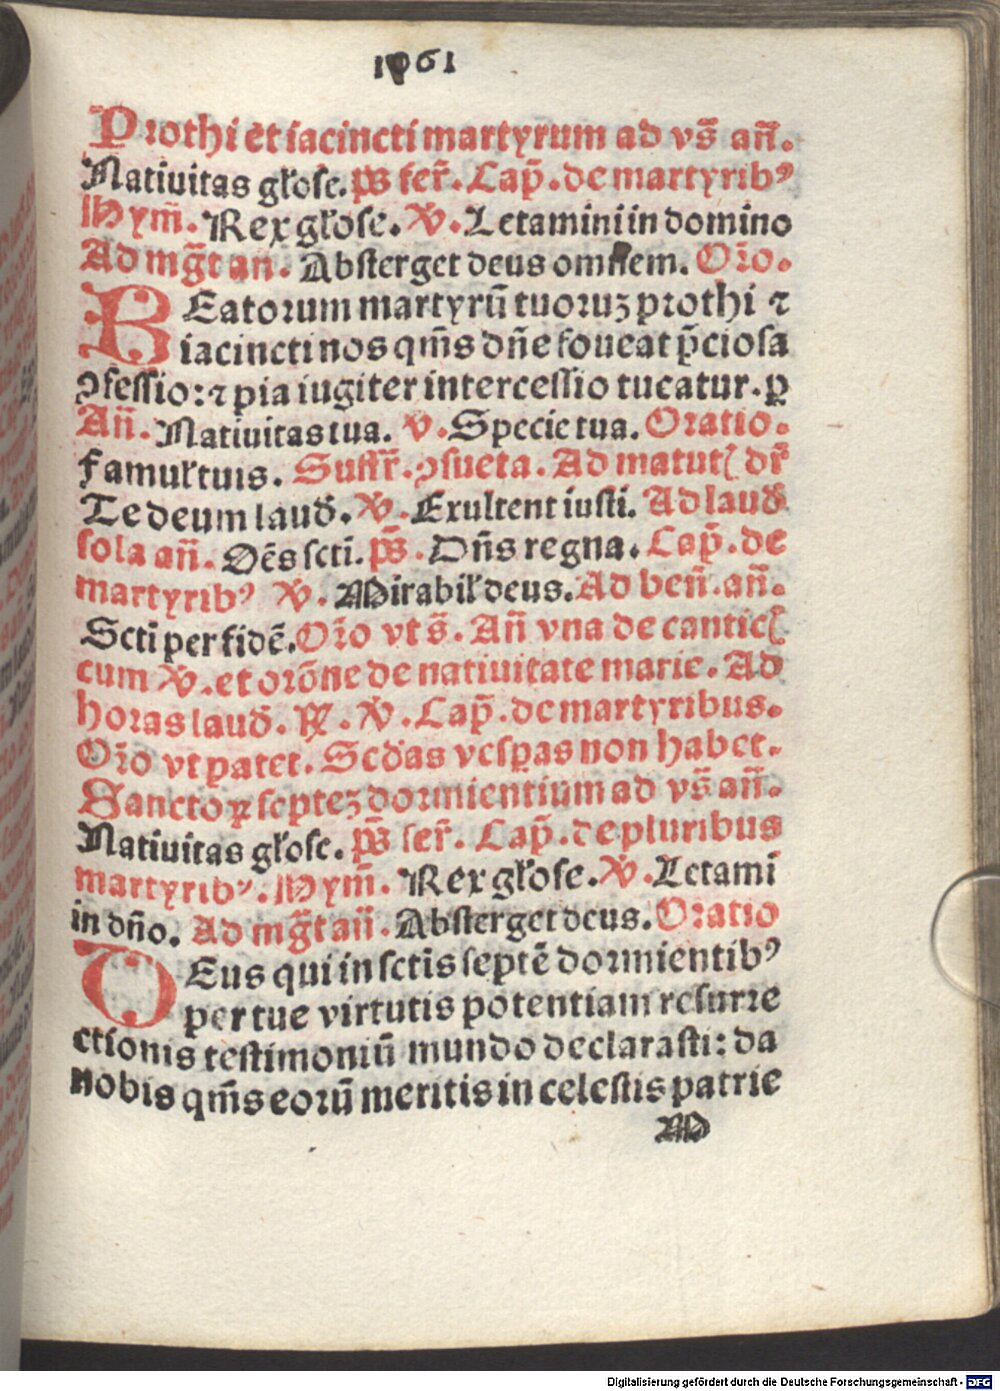 1961
Prothi et iacincti martyrum ad vs̄ an̄.
Natiuitas gl̄ose. ps̄ fer̄. Cap̄. de martyribꝰ
Hym̄. Rex gl̄ose. ℣. Letamini in domino
Ad mḡt an. Absterget deus omnem. Or̄o.
BEatorum martyrū tuoruꝫ prothi ⁊
iacincti nos qm̄s dn̄e foueat p̄ciosa
ꝯfessio: ⁊ pia iugiter intercessio tueatur. ꝑ
An̄. Natiuitas tua. ℣. Specie tua. Oratio.
Famul̄ tuis. Suffr̄. ꝯsueta. Ad matut̄ dr̄
Te deum laud̄. ℣. Exultent iusti. Ad laud̄
sola an̄. Oēs scti. ps̄. Dn̄s regna. Cap̄. de
martyribꝰ ℣. Mirabil̄ deus. Ad ben̄. an̄.
Scti per fidē. Or̄o vt s̄. An̄ vna de cantic̄
cum ℣. et orōne de natiuitate marie. Ad
horas laud̄. ℟. ℣. Cap̄. de martyribus.
Or̄o vt patet. Scd̄as vesꝑas non habet.
Sanctoꝝ septeꝫ dormientium ad vs̄ an̄.
Natiuitas gl̄ose. ps̄ fer̄. Cap̄. de pluribus
martyribꝰ. Hym̄. Rex gl̄ose. ℣. Letami
in dn̄o. Ad mḡt an̄. Absterget deus. Oratio
DEus qui in sctis septē dormientibꝰ
per tue virtutis potentiam resurre
ctionis testimoniū mundo declarasti: da
nobis qm̄s eorū meritis in celestis patrie
M
Digitalisierung gefördert durch die Deutsche Forschungsgemeinschaft - DFG